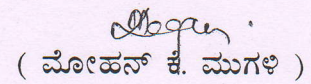 ( ಮೋಹನ್ ಕೆ. ಮುಗಳಿ )